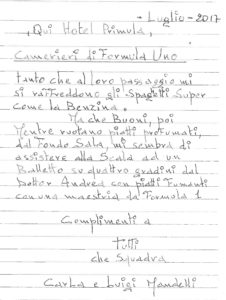 - Luglio - 2017
Qui Hotel Primula,
Camerieri di Formula Uno
tanto che al loro passaggio mi
si raffreddono gli Spaghetti Super
come la Benzina.
Ma che Buoni, poi
Mentre ruotano piatti profumati,
dal Fondo Sala, mi sembra di
assistere alla Scala ad un
Balletto su quattro gradini dal
Dottor Andrea con piatti Fumanti
con una maestria da Formula 1
Complimenti a
tutti
che Squadra
Carla e Luigi Mandelli